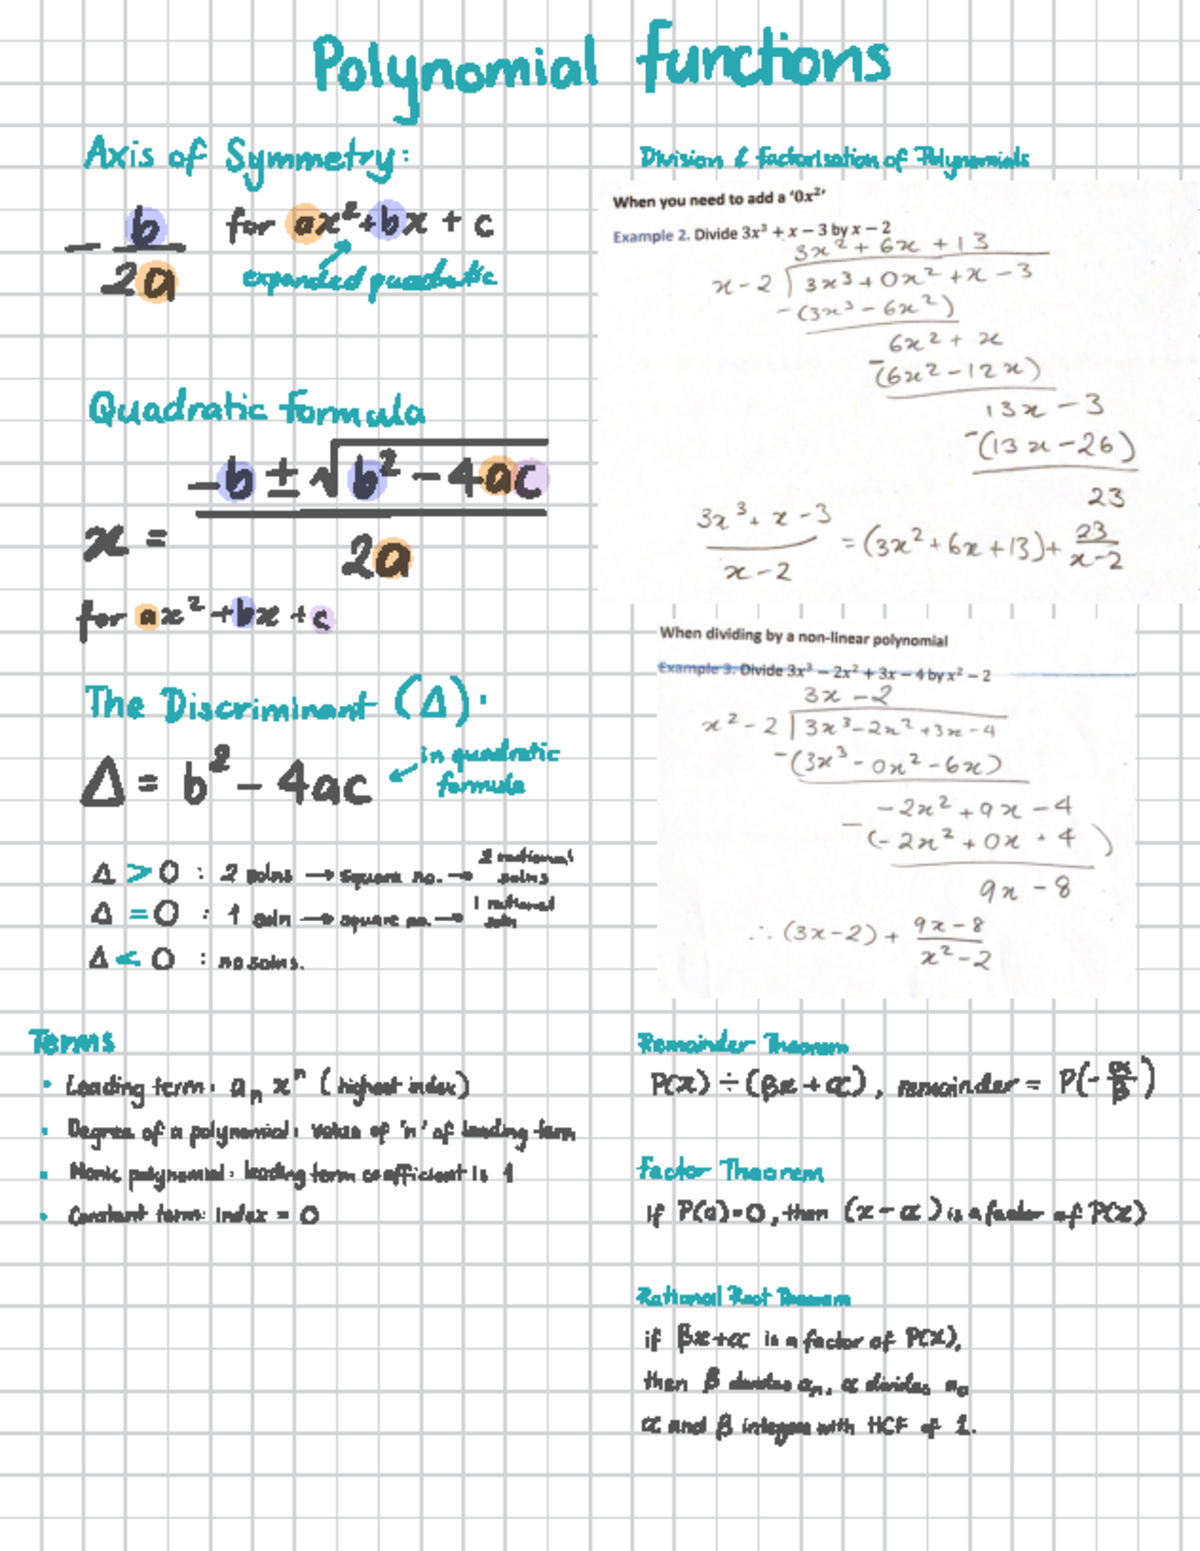 Polynomial functions
Axis of Symmetry:
- b / 2a
for ax²+bx + c
expanded quadratic
Quadratic formula
x = -b ± √b² - 4ac / 2a
for ax² + bx + c
The Discriminant (Δ):
Δ = b² - 4ac
in quadratic
formula
Δ > 0 : 2 solns → square no. → 2 rational solns
Δ = 0 : 1 soln → square no. → 1 rational soln
Δ < 0 : no solns.
Terms
• Leading term: aₙ xⁿ (highest index)
• Degree of a polynomial: value of 'n' of leading term
• Monic polynomial: leading term coefficient is 1
• Constant term: index = 0
Division & factorisation of Polynomials
When you need to add a '0x²'
Example 2. Divide 3x³ + x – 3 by x – 2
3x² + 6x + 13
x - 2 | 3x³ + 0x² + x - 3
- (3x³ - 6x²)
6x² + x
-(6x² - 12x)
13x - 3
-(13x - 26)
23
3x³ + x - 3 / x - 2 = (3x² + 6x + 13) + 23 / x - 2
When dividing by a non-linear polynomial
Example 3. Divide 3x³ – 2x² + 3x – 4 by x² – 2
3x - 2
x² - 2 | 3x³ - 2x² + 3x - 4
-(3x³ - 0x² - 6x)
- 2x² + 9x - 4
- (- 2x² + 0x + 4 )
9x - 8
∴ (3x - 2) + 9x - 8 / x² - 2
Remainder Theorem
P(x) ÷ (βx + α), remainder = P(- α/β)
factor Theorem
if P(α) = 0, then (x - α) is a factor of P(x)
Rational Root Theorem
if βx + α is a factor of P(x),
then β divides aₙ, α divides a₀
α and β integers with HCF of 1.